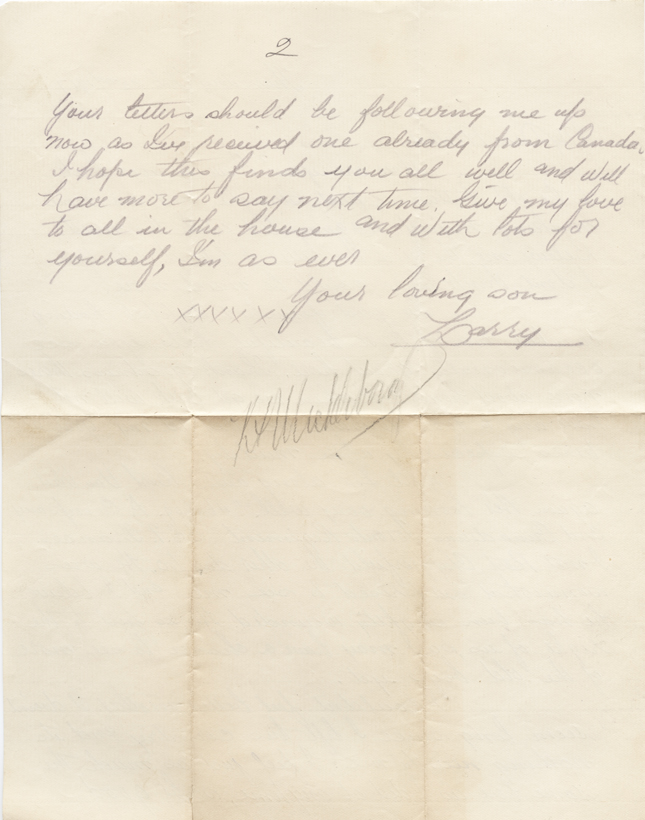 2
Your letters should be following me up
now as I've received one already from Canada.
I hope this finds you all well and will
have more to say next time. Give my love
to all in the house and with lots for
yourself, I'm as ever
Your loving son
xxxxxx
Harry